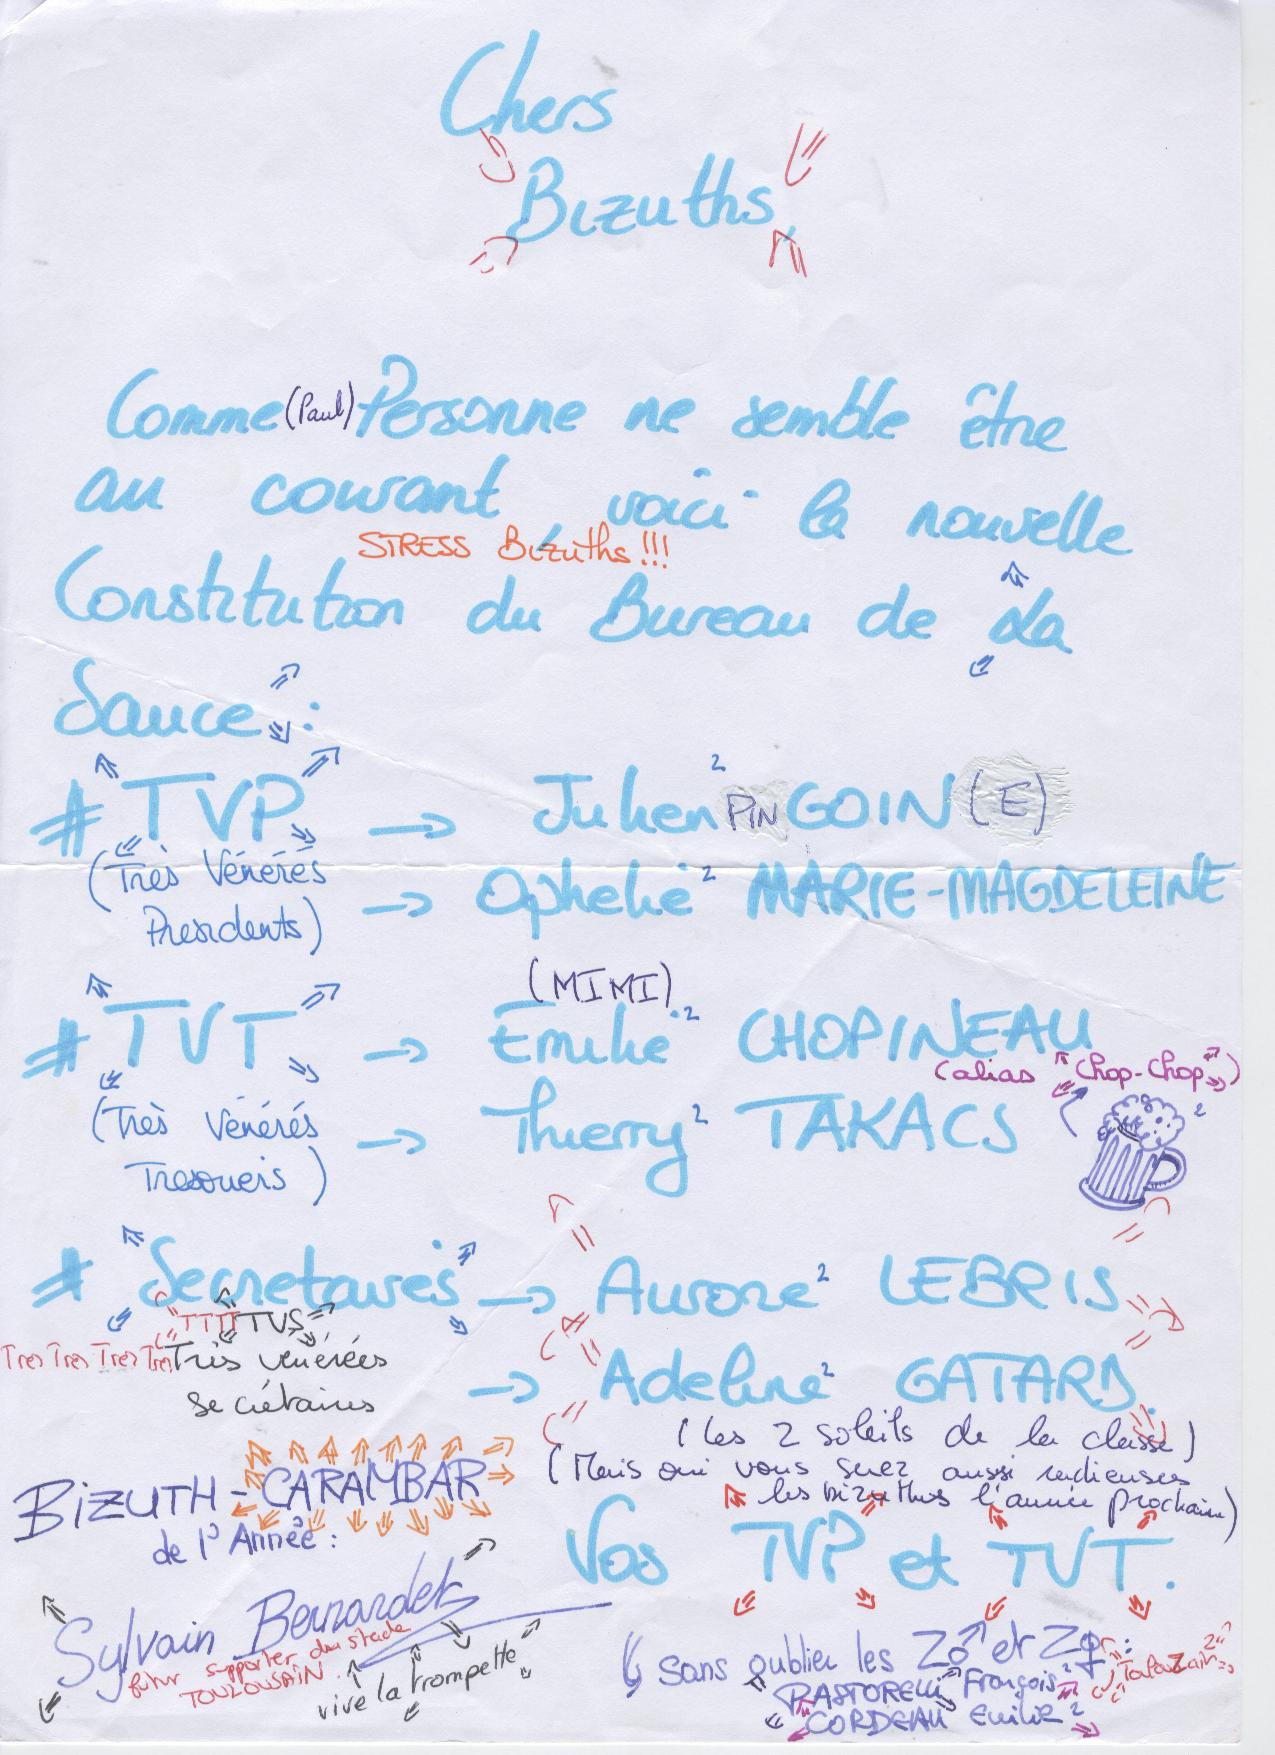 Chers
Bizuths,
Comme (Paul) Personne ne semble être
au courant, voici la nouvelle
STRESS Bizuths!!!
Constitution du Bureau de La
Sauce :
# TVP → Julien² PIN GOIN (E)
(Très Vénérés
Présidents)
→ Ophélie² MARIE-MAGDELEINE
(MIMI)
# TVT → Emilie² CHOPINEAU
(alias Chop-Chop)
(Très Vénérés
Tresoriers)
→ Thierry² TAKACS
2
# Secretaires → Aurore² LEBRIS
TTTTTVS
Tres Tres Tres Tres Très vénérées
secrétaires
→ Adeline² GATARD.
(les 2 soleils de la classe)
(Mais oui vous serez aussi radieuses
les bizuths l'année prochaine)
BIZUTH-CARAMBAR
de l'Année :
Vos TVP et TVT.
Sylvain Bernardet
futur supporter du stade
TOULOUSAIN
vive la trompette
sans oublier les Z♂ et Z♀ :
PASTORELLI François²
CORDEAU Emilie²